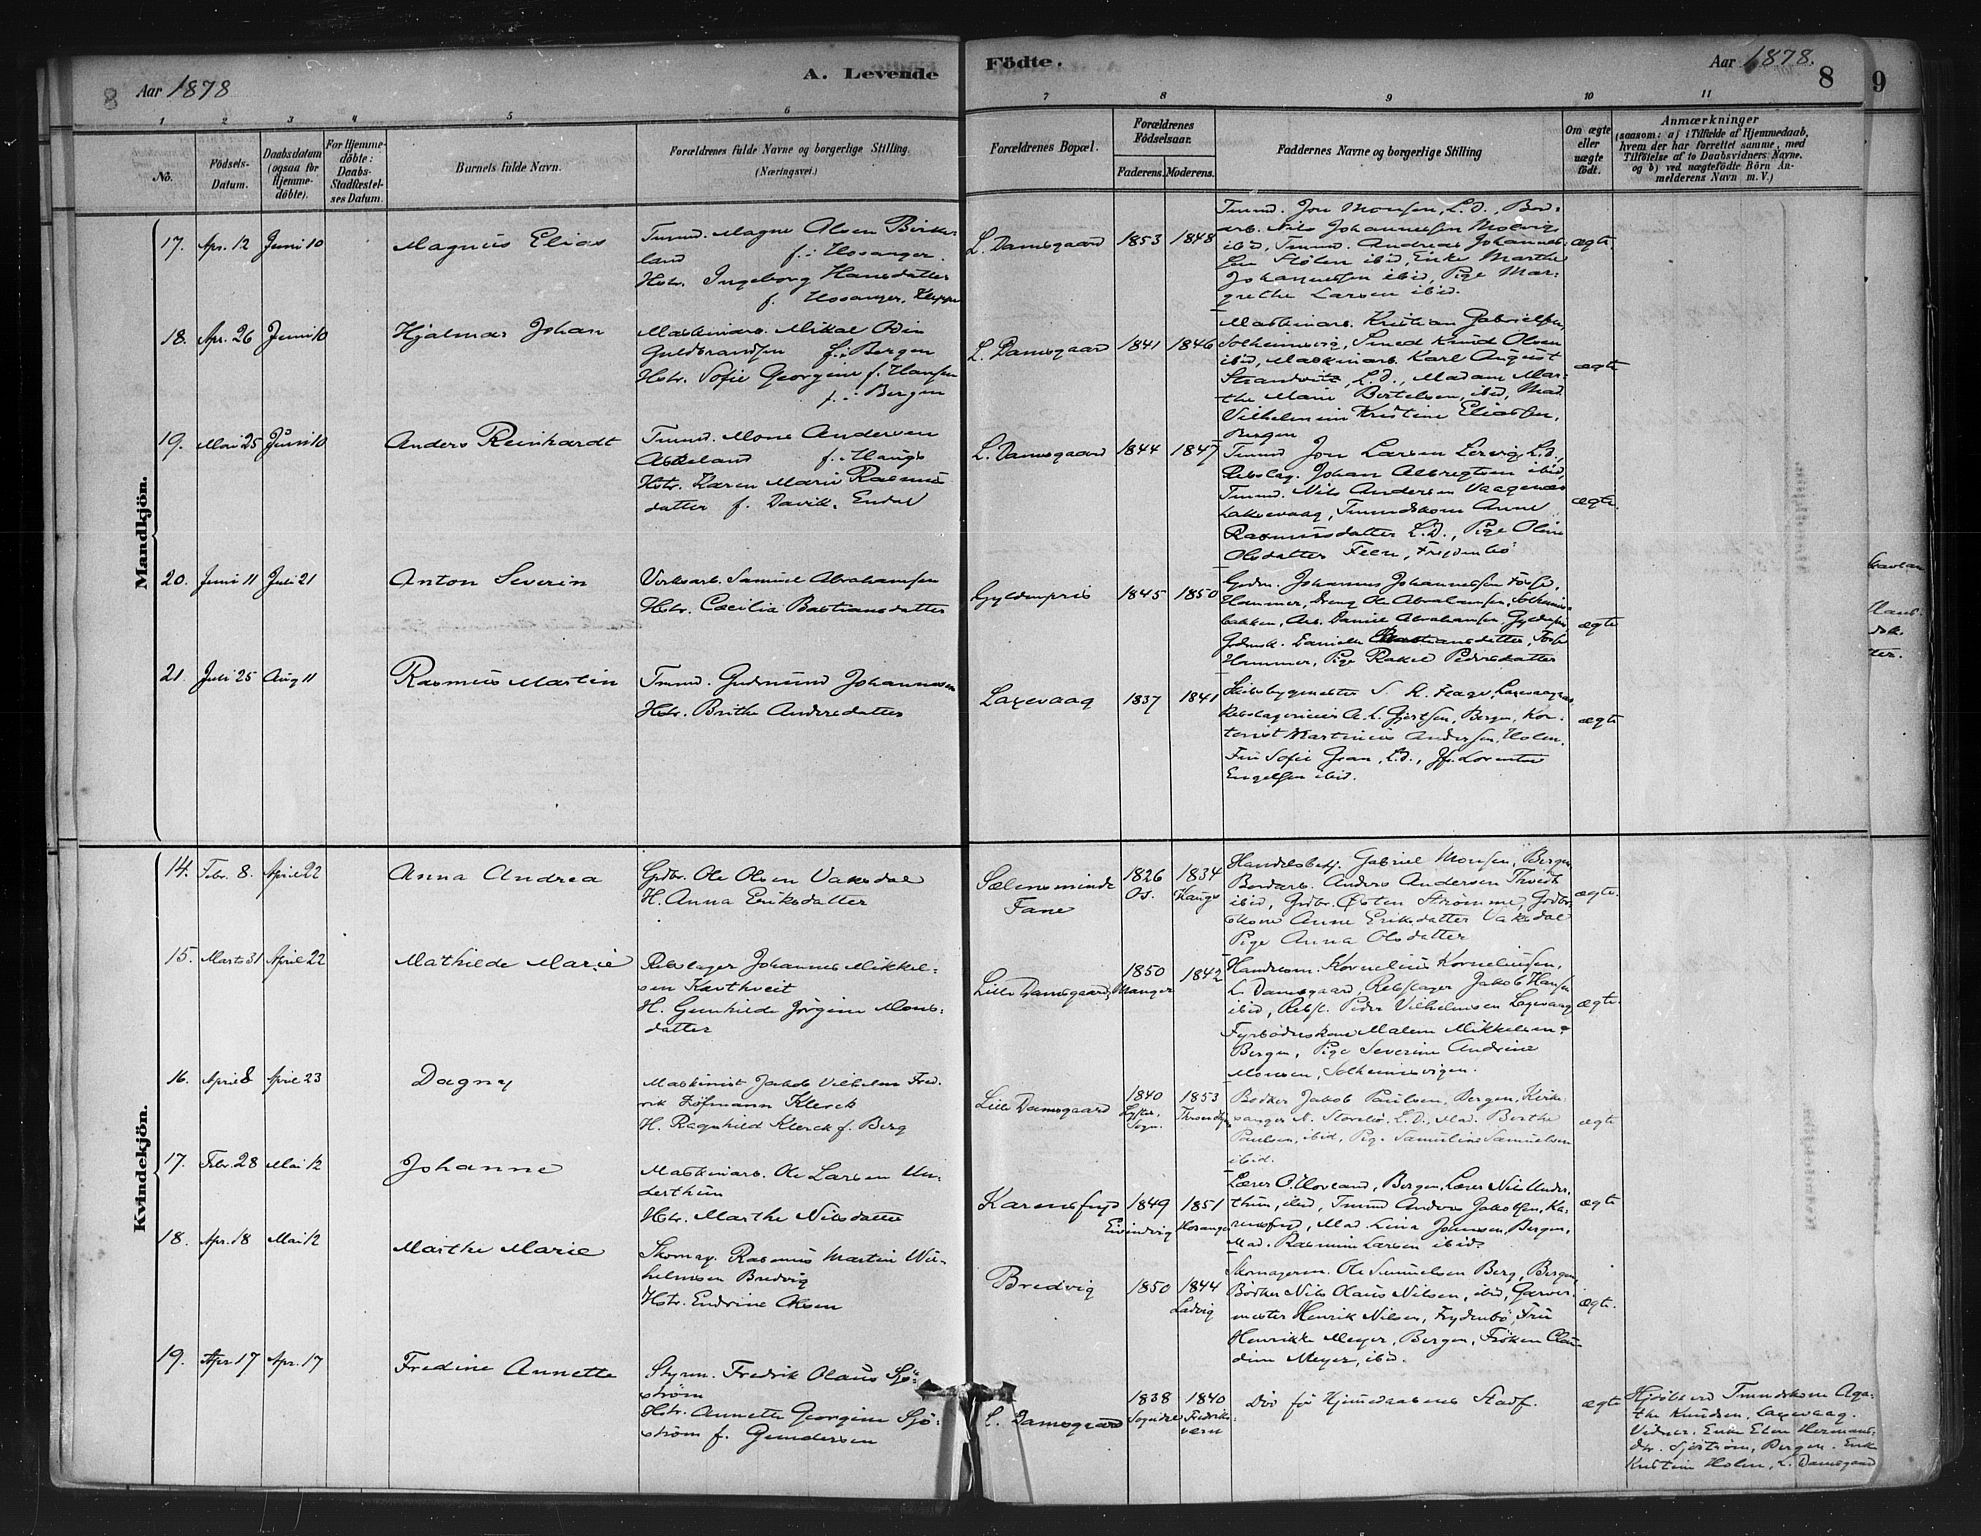 8
Aar 1878
A. Levende
Födte.
Aar 1878.
8
9
1
2
3
4
5
6
7
8
9
10
11
No.
Födsels-
Datum.
Daabsdatum
(ogsaa for
Hjemme-
döbte).
For Hjemme-
döbte:
Daabs-
Stadfæstel-
ses Datum.
Barnets fulde Navn.
Forældrenes fulde Navne og borgerlige Stilling.
(Næringsvei.)
Forældrenes Bopæl.
Forældrenes
Födselsaar.
Faderens.
Moderens.
Faddernes Navne og borgerlige Stilling
Om ægte
eller
uægte
födt.
Anmærkninger
(saasom: a) i Tilfælde af Hjemmedaab,
hvem der har forrettet samme, med
Tilföielse af to Daabsvidners Navne.
og b) ved uægtefödte Börn An-
melderens Navn m. V.)
Mandkjön.
17. Apr. 12 Juni 10
Magnus Elias
Tmmd. Magne Olsen Birke-
land f. i Hosanger.
Hstr. Ingeborg Hansdatter
f. Hosanger,
L. Damsgaard 1853 1848
Tmmd. Jon Monsen, L.D., Bord-
arb. Nils Johannessen
ibid, Tmmd. Andreas Johannes-
sen Stölen ibid, Enke Marthe
Johannessen ibid, Pige Mar-
grethe Larsen ibid.
ægte
18. Apr. 26 Juni 10
Hjalmar Johan
Maskinarb. Mikal
Guldbrandsen f. i Bergen
Hstr. Sofie Georgine f. Hansen
f. i Bergen
L. Damsgaard 1841 1846
Maskinarb. Kristian Gabrielsen,
Solheimsvig, Smed Knud Olsen
ibid, Maskinarb. Karl August
L.D., Madam Mar-
the Marie Bertelsen, ibid, Mad.
Vilhelmine Kristine Eliassen,
Bergen
ægte
19. Mai 25 Juni 10
Anders Reinhardt
Tmmd. Mons Andersen
f. i Haugs
Hstr. Karen Marie Rasmus-
datter f. Davik. Endal
L. Damsgaard 1844 1847
Tmmd Jon Larsen L.D.,
Rebslag. Johan Albregtsen ibid,
Tmmd. Nils Andersen Vaagenes
Laksevaag, Tmmdskone Anne
Rasmusdatter L.D., Pige Oline
Olsdatter Feen, Frydenbö
ægte
20. Juni 11 Juli 21
Anton Severin
Verksarb. Samuel Abrahamsen
Hstr. Cæcilia Bastiansdatter
Gyldenpris 1845 1850
Gbdm. Johannes Johannessen Fosse,
Hammer, Dreng Ole Abrahamsen, Solheims-
bakken, Arb. Daniel Abrahamsen, Gyldenpr.
Gbdmsk. Danielle Bastiansdatter, Fosse
Hammer, Pige Rakel Pedersdatter
ægte
21. Juli 25 Aug 11
Rasmus Martin
Tmmd. Gudmund Johannesen
Hstr. Brithe Andersdatter
Laxevaag 1837 1841
Skibsbygmester S. K. Laxevaagnes
Rebslagermester A. L. Gjertsen, Bergen, Kon-
torist Martinius Andersen, Holen.
Fru Sofie Gran, L.D., Jfr. Lorentze
Engelsen ibid.
ægte
Kvindekjön.
14. Febr. 8. April 22
Anna Andrea
Grdbr. Ole Olsen Vaksdal
H. Anna Eriksdatter
Sælensminde
Fane
1826
Os.
1834
Haugs
Handelsbetj. Gabriel Monsen, Bergen,
Bordarb. Anders Andersen Thvedt
ibid, Grdbr. Østen Strømme, Grdbr.
skone Anne Eriksdatter Vaksdal
Pige Anna Olsdatter
ægte.
15. Marts 31 April 22
Mathilde Marie
Rebslager Johannes Mikkel-
sen Kartveit
H. Gunhilde Jörgine Mons-
datter
Lille Damsgaard
1850
Manger
1842
Handelsm. Kornelius Korneliussen,
L. Damsgaard, Rebslager Jakob Hansen
ibid, Rebsl. Peder Vilhelmsen Laxevaag
Fyrböderskone Malene Mikkelsen
Bergen, Pige Severine Andrine
Monsen, Solheimsvigen.
ægte
16. April 8 April 23
Dagny
Maskinist Jakob Vilhelm Fred-
rik Hofmann Klerck
H. Ragnhild Klerck f. Berg
Lille Damsgaard
1840
Lyster
Sogn.
1853
Throndhjem
Bödker Jakob Paulsen, Bergen, Kirke-
sanger N. Storebö, L.D., Mad. Berthe
Paulsen, ibid, Pige Samueline Samuelsen
ibid.
ægte
17. Febr. 28 Mai 12
Johanne
Maskinarb. Ole Larsen Un-
derthun
Hstr. Marthe Nilsdatter
Karensfryd
1849
Evindvig
1851
Hosanger
Lærer O. Hovland, Bergen, Lærer Nils Under-
thun, ibid, Tmmd Anders Jakobsen, Ka-
rensfryd, Mad. Lina Joensen, Bergen,
Mad. Rasmine Larsen ibid.
ægte
18. Apr. 18 Mai 12
Marthe Marie
Skomag. Rasmus Martin Wil-
helmsen Bredvig
Hstr. Endrine Olsen
Bredvig
1850
1844
Ladvig
Skomagerm. Ole Samuelsen Berg, Bergen,
Bödker Nils Olaus Nilsen, ibid, Garver-
mester Henrik Nilsen, Frydenbö, Fru
Henrikke Meyer, Bergen, Fröken Clau-
dine Meyer, ibid.
ægte.
19. Apr 17 Apr. 17
Fredine Annette
Styrm. Fredrik Olaus Sjö-
ström
Hstr. Annette Georgine Sjö-
ström f. Gundersen
L. Damsgaard
1838
1840
Fredriks-
værn
Död för Hjemmedaabens Stadf.
ægte
Hjdöbt ved Tmmdskone Aga-
the Knudsen, Laxevaag.
Vidner: Enke Elen Hermans-
dtr. Sjöström, Bergen. Enke
Kristine Holm, L. Damsgaard